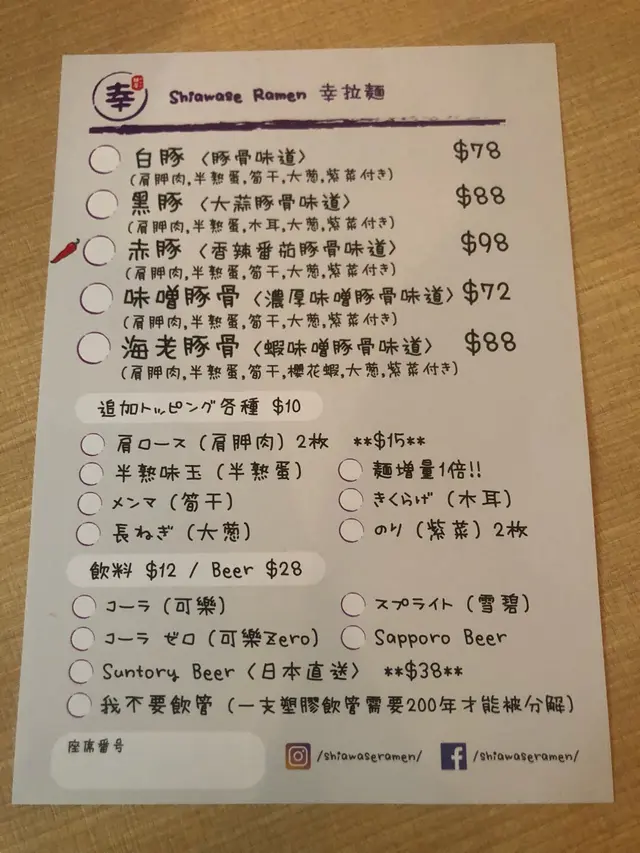 幸 Shiawase Ramen 幸拉麺
白豚〈豚骨味道〉 $78
(肩胛肉,半熟蛋,筍干,大葱,紫菜付き)
黑豚〈大蒜豚骨味道〉 $88
(肩胛肉,半熟蛋,木耳,大葱,紫菜付き)
赤豚〈香辣番茄豚骨味道〉 $98
(肩胛肉,半熟蛋,筍干,大葱,紫菜付き)
味噌豚骨〈濃厚味噌豚骨味道〉 $72
(肩胛肉,半熟蛋,筍干,大葱,紫菜付き)
海老豚骨〈蝦味噌豚骨味道〉 $88
(肩胛肉,半熟蛋,筍干,櫻花蝦,大葱,紫菜付き)
追加トッピング各種 $10
肩ロース(肩胛肉)2枚 **$15**
半熟味玉(半熟蛋) 麺增量1倍!!
メンマ(筍干) きくらげ(木耳)
長ねぎ(大葱) のり(紫菜)2枚
飲料 $12 / Beer $28
コーラ(可樂) スプライト(雪碧)
コーラ ゼロ(可樂Zero) Sapporo Beer
Suntory Beer〈日本直送〉 **$38**
我不要飲管(一支塑膠飲管需要200年才能被分解)
座席番号 /shiawaseramen/ /shiawaseramen/